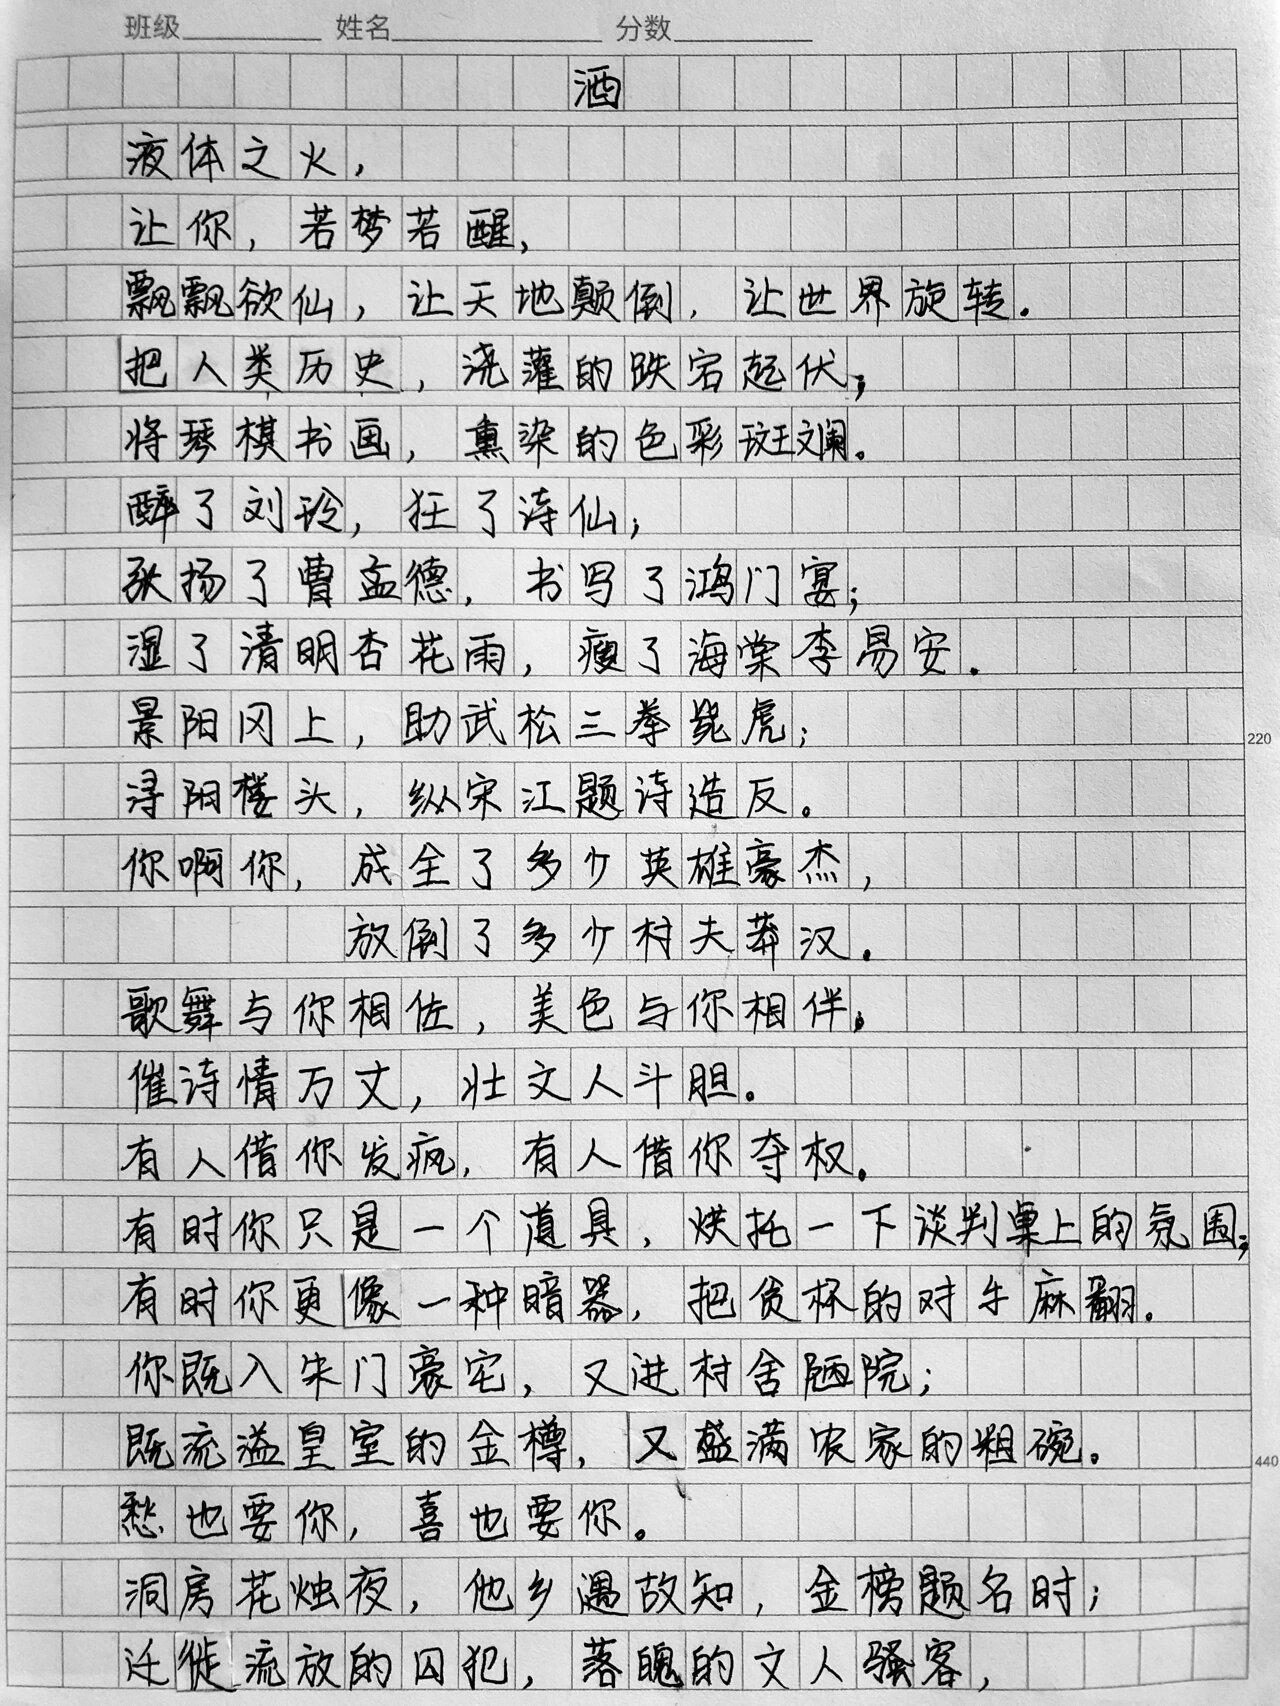 班级 姓名 分数
酒
液体之火，
让你，若梦若醒，
飘飘欲仙，让天地颠倒，让世界旋转．
把人类历史，浇灌的跌宕起伏；
将琴棋书画，熏染的色彩斑斓。
醉了刘玲，狂了诗仙；
张扬了曹孟德，书写了鸿门宴；
湿了清明杏花雨，瘦了海棠李易安．
景阳冈上，助武松三拳毙虎；
浔阳楼头，纵宋江题诗造反。
220
你啊你，成全了多少英雄豪杰，
放倒了多少村夫莽汉。
歌舞与你相佐，美色与你相伴。
催诗情万丈，壮文人斗胆。
有人借你发疯，有人借你夺权。
有时你只是一个道具，烘托一下谈判桌上的氛围；
有时你更像一种暗器，把贪杯的对手麻翻．
你既入朱门豪宅，又进村舍陋院；
既流溢皇室的金樽，又盛满农家的粗碗．
440
愁也要你，喜也要你。
洞房花烛夜，他乡遇故知，金榜题名时；
迁徙流放的囚犯，落魄的文人骚客，